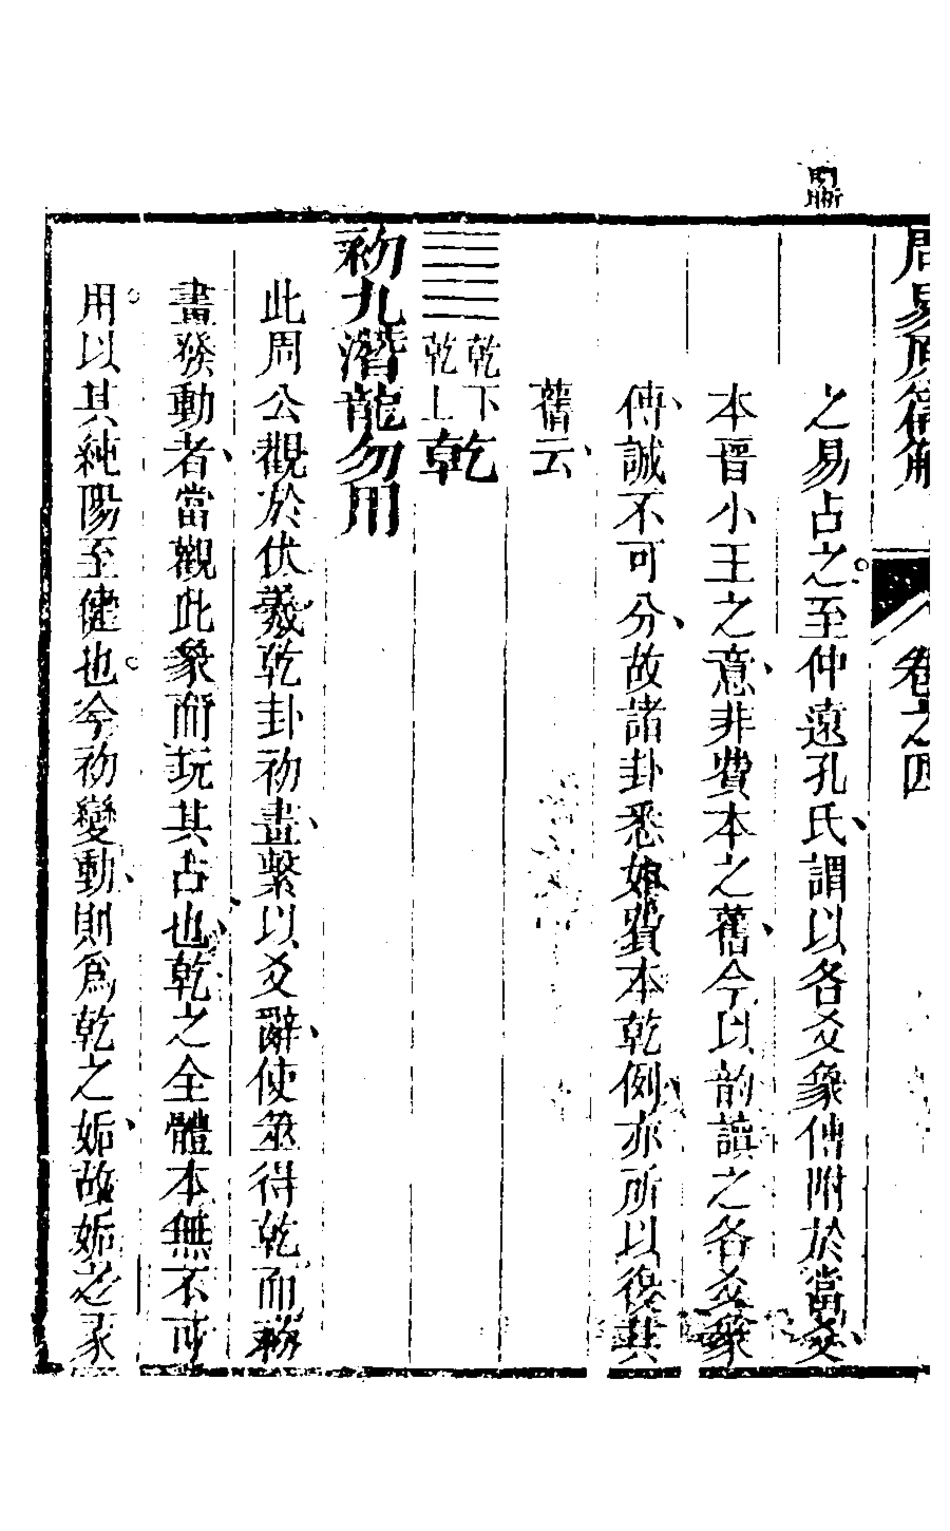 周易原篇解 卷之四
之易占之至仲遠孔氏謂以各爻象傳附於當爻
本晉小王之意非費本之舊今以韵讀之各爻象
傳誠不可分故諸卦悉如費本乾例亦所以復其
舊云
乾下乾上乾
初九潛龍勿用
此周公觀於伏羲乾卦初畫繫以爻辭使筮得乾而初
畫發動者當觀此象而玩其占也乾之全體本無不可
用以其純陽至健也今初變動則為乾之姤故姤之彖